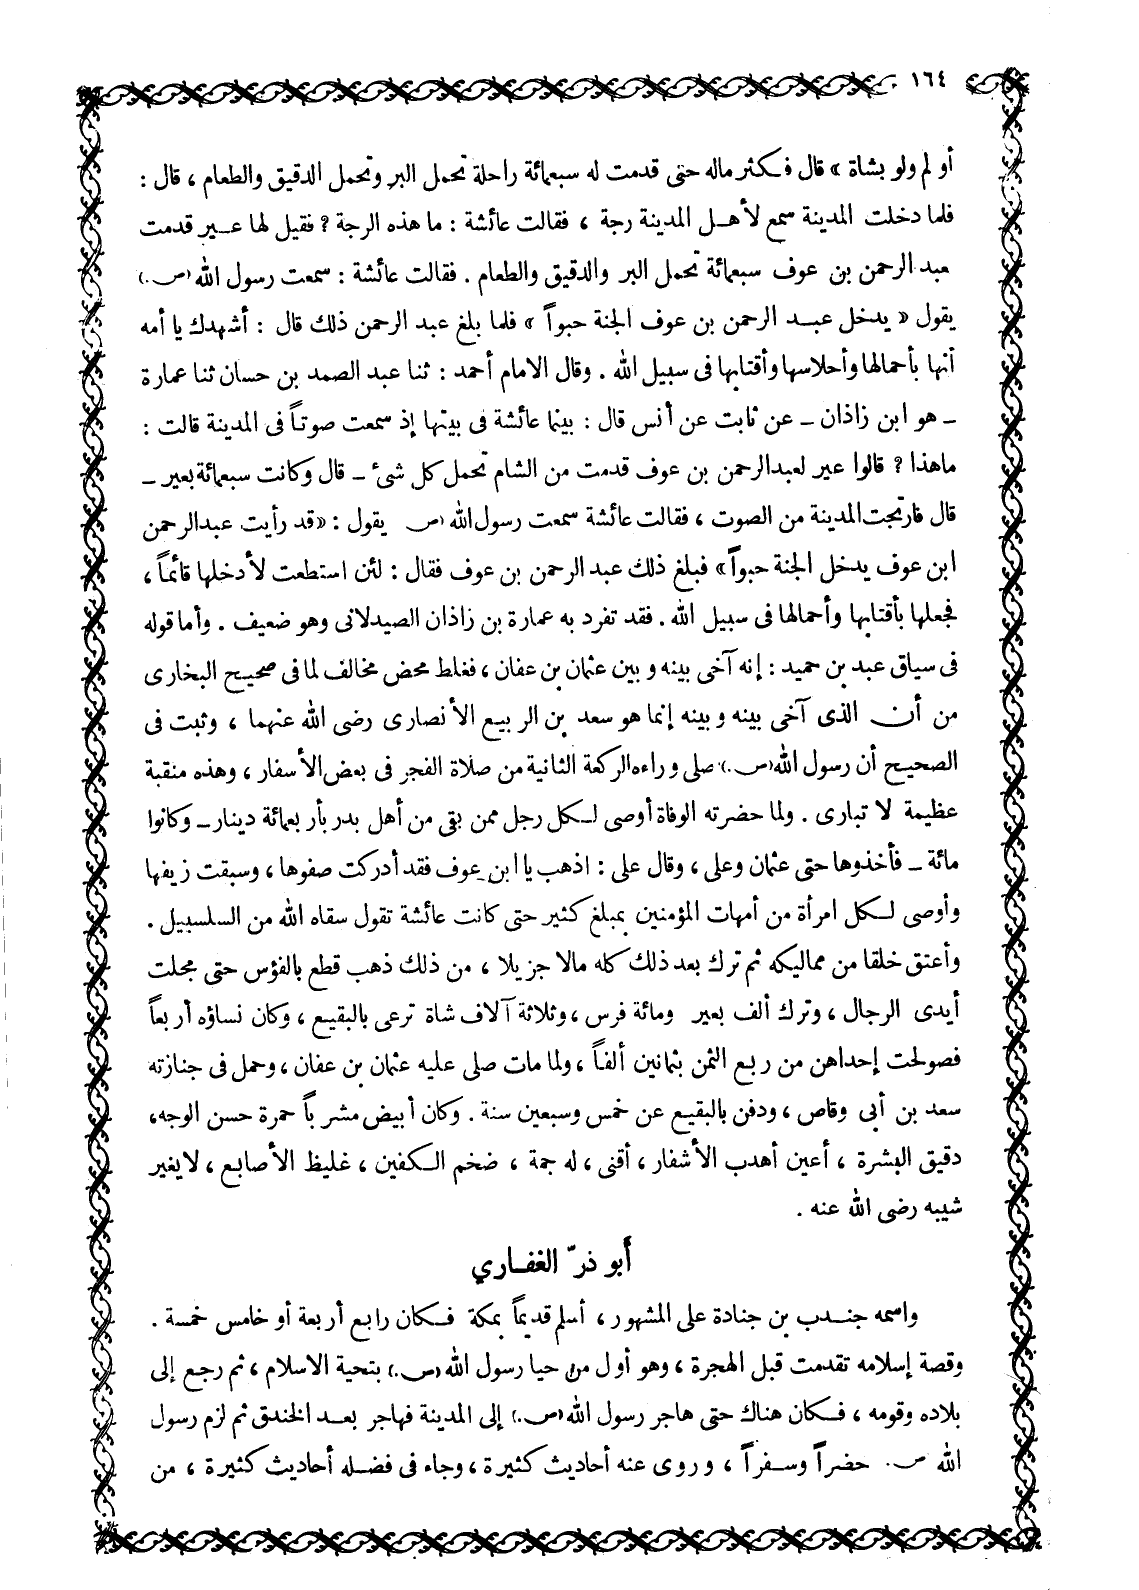 ١٦٤
أو لم ولو بشاة » قال فكثر ماله حتى قدمت له سبعمائة راحلة تحمل البر وتحمل الدقيق والطعام ، قال :
فلما دخلت المدينة سمع لأهل المدينة رجة ، فقالت عائشة : ما هذه الرجة ? فقيل لها عير قدمت
عبد الرحمن بن عوف سبعمائة تحمل البر والدقيق والطعام . فقالت عائشة : سمعت رسول الله (ص.)
يقول « يدخل عبد الرحمن بن عوف الجنة حبواً » فلما بلغ عبد الرحمن ذلك قال : أشهدك يا أمه
أنها بأحمالها وأحلاسها وأقتابها فى سبيل الله . وقال الامام أحمد : ثنا عبد الصمد بن حسان ثنا عمارة
ـ هو ابن زاذان ـ عن ثابت عن أنس قال : بينما عائشة فى بيتها إذ سمعت صوتاً فى المدينة قالت :
ماهذا ? قالوا عير لعبدالرحمن بن عوف قدمت من الشام تحمل كل شىء ـ قال وكانت سبعمائة بعير ـ
قال فارتجت المدينة من الصوت ، فقالت عائشة سمعت رسول الله (ص يقول : «قد رأيت عبدالرحمن
ابن عوف يدخل الجنة حبواً» فبلغ ذلك عبد الرحمن بن عوف فقال : لئن استطعت لأدخلها قائماً ،
فجعلها بأقتابها وأحمالها فى سبيل الله . فقد تفرد به عمارة بن زاذان الصيدلانى وهو ضعيف . وأما قوله
فى سياق عبد بن حميد : إنه آخى بينه وبين عثمان بن عفان ، فغلط محض مخالف لما فى صحيح البخارى
من أن الذى آخى بينه وبينه إنما هو سعد بن الربيع الأنصارى رضى الله عنهما ، وثبت فى
الصحيح أن رسول الله (ص.) صلى وراءه الركعة الثانية من صلاة الفجر فى بعض الأسفار ، وهذه منقبة
عظيمة لا تبارى . ولما حضرته الوفاة أوصى لكل رجل ممن بقى من أهل بدر بأربعمائة دينار ـ وكانوا
مائة ـ فأخذوها حتى عثمان وعلى ، وقال على : اذهب يا ابن عوف فقد أدركت صفوها ، وسبقت زيفها
وأوصى لكل امرأة من أمهات المؤمنين بمبلغ كثير حتى كانت عائشة تقول سقاه الله من السلسبيل .
وأعتق خلقا من مماليكه ثم ترك بعد ذلك كله مالا جزيلا ، من ذلك ذهب قطع بالفؤس حتى مجلت
أيدى الرجال ، وترك ألف بعير ومائة فرس ، وثلاثة آلاف شاة ترعى بالبقيع ، وكان نساؤه أربعاً
فصولحت إحداهن من ربع الثمن بثمانين ألفاً ، ولما مات صلى عليه عثمان بن عفان ، وحمل فى جنازته
سعد بن أبى وقاص ، ودفن بالبقيع عن خمس وسبعين سنة . وكان أبيض مشرباً حمرة حسن الوجه،
دقيق البشرة ، أعين أهدب الأشفار ، أقنى ، له جمة ، ضخم الكفين ، غليظ الأصابع ، لا يغير
شيبه رضى الله عنه .
أبو ذرّ الغفاري
واسمه جندب بن جنادة على المشهور ، أسلم قديماً بمكة فكان رابع أربعة أو خامس خمسة .
وقصة إسلامه تقدمت قبل الهجرة ، وهو أول من حيا رسول الله (ص.) بتحية الاسلام ، ثم رجع إلى
بلاده وقومه ، فكان هناك حتى هاجر رسول الله (ص.) إلى المدينة فهاجر بعد الخندق ثم لزم رسول
الله ص. حضراً وسفراً ، وروى عنه أحاديث كثيرة ، وجاء فى فضله أحاديث كثيرة ، من